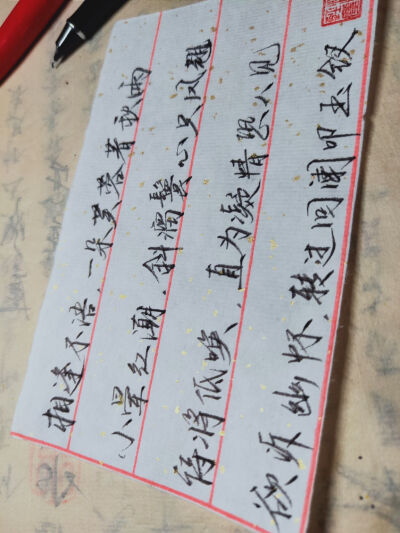 相逢不语、一朵芙蓉着秋雨
小晕红潮、斜溜鬟心只凤翘
待将低唤、直为凝情恐人见
欲诉幽怀、转过回阑叩玉钗